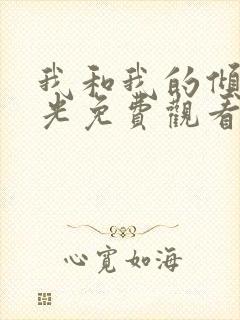 我和我的傾
光免費觀看
心寬如海